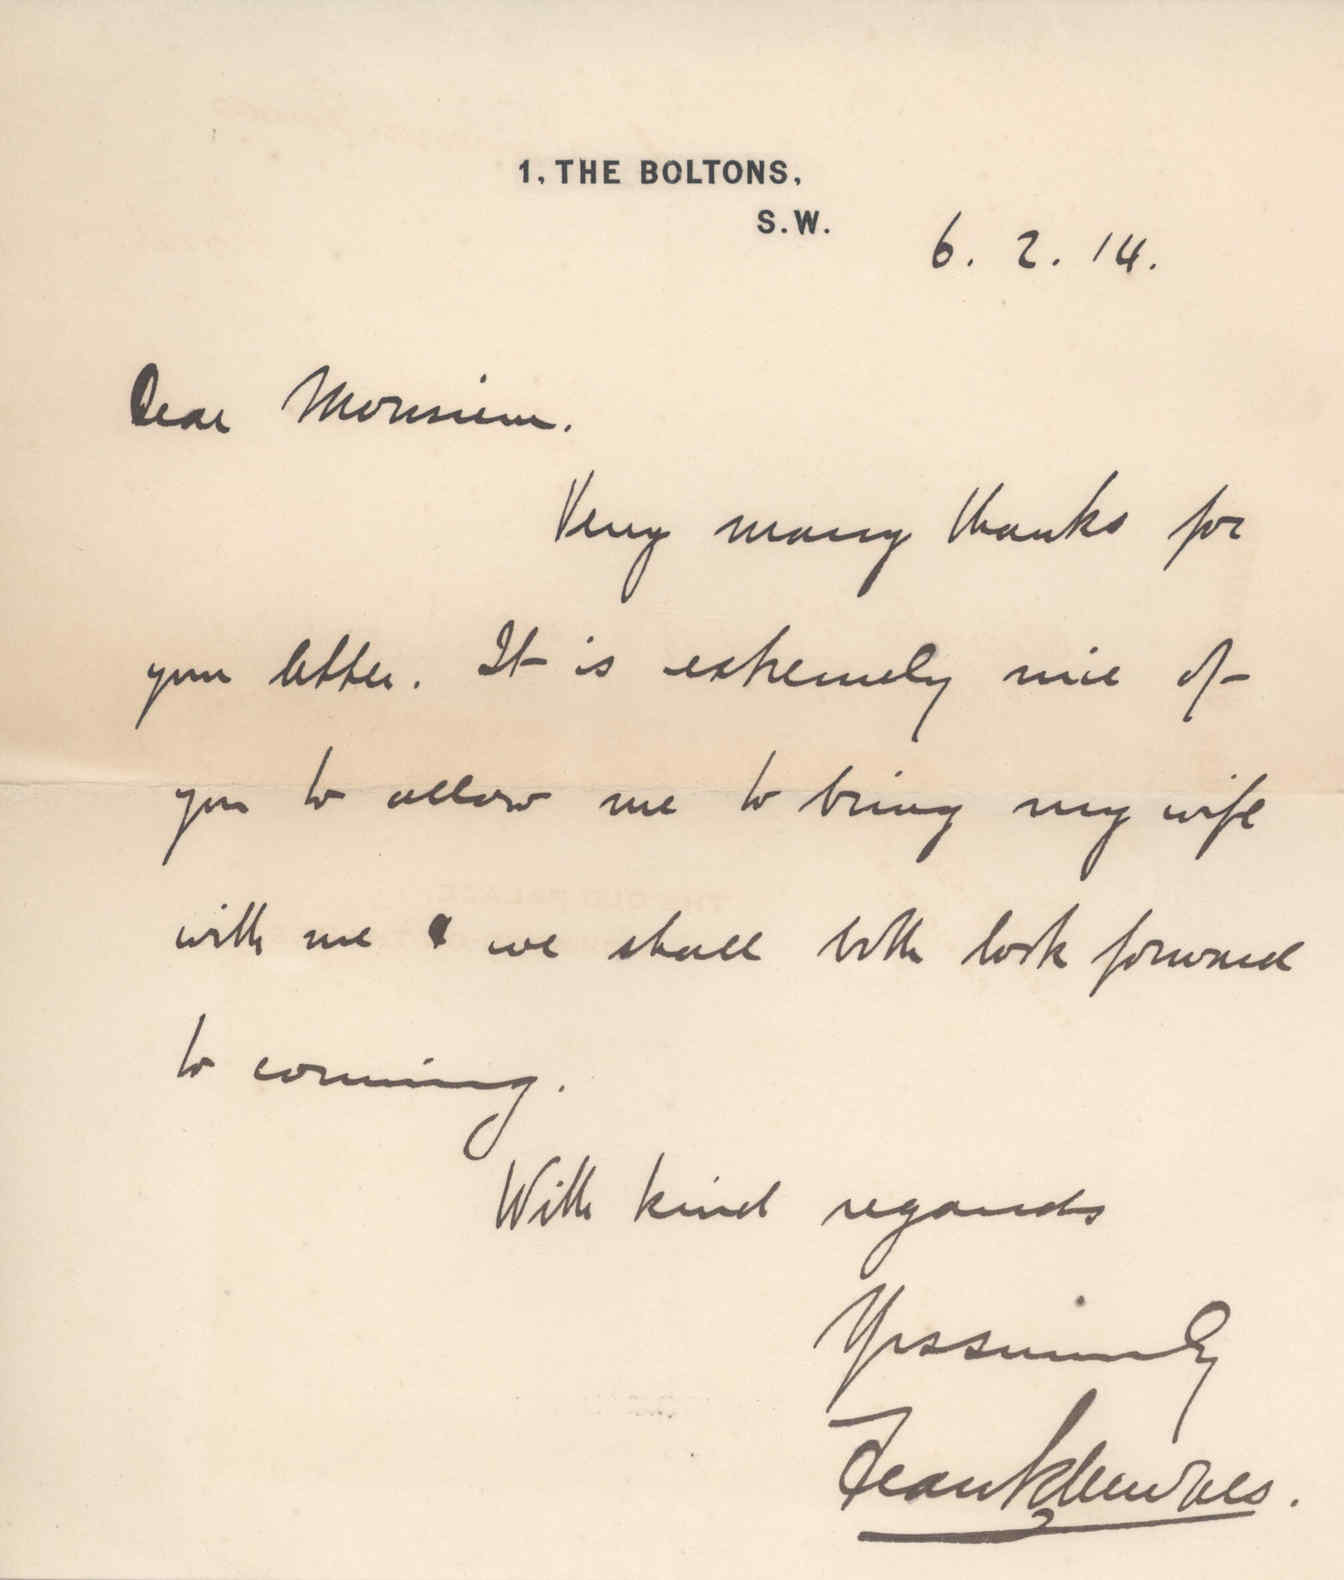 1, THE BOLTONS,
S.W.
6. 2. 14.
Dear Monsieur.
Very many thanks for
your letter. It is extremely nice of
you to allow me to bring my wife
with me & we shall both look forward
to coming.
With kind regards
Yrs sincerely
Frank